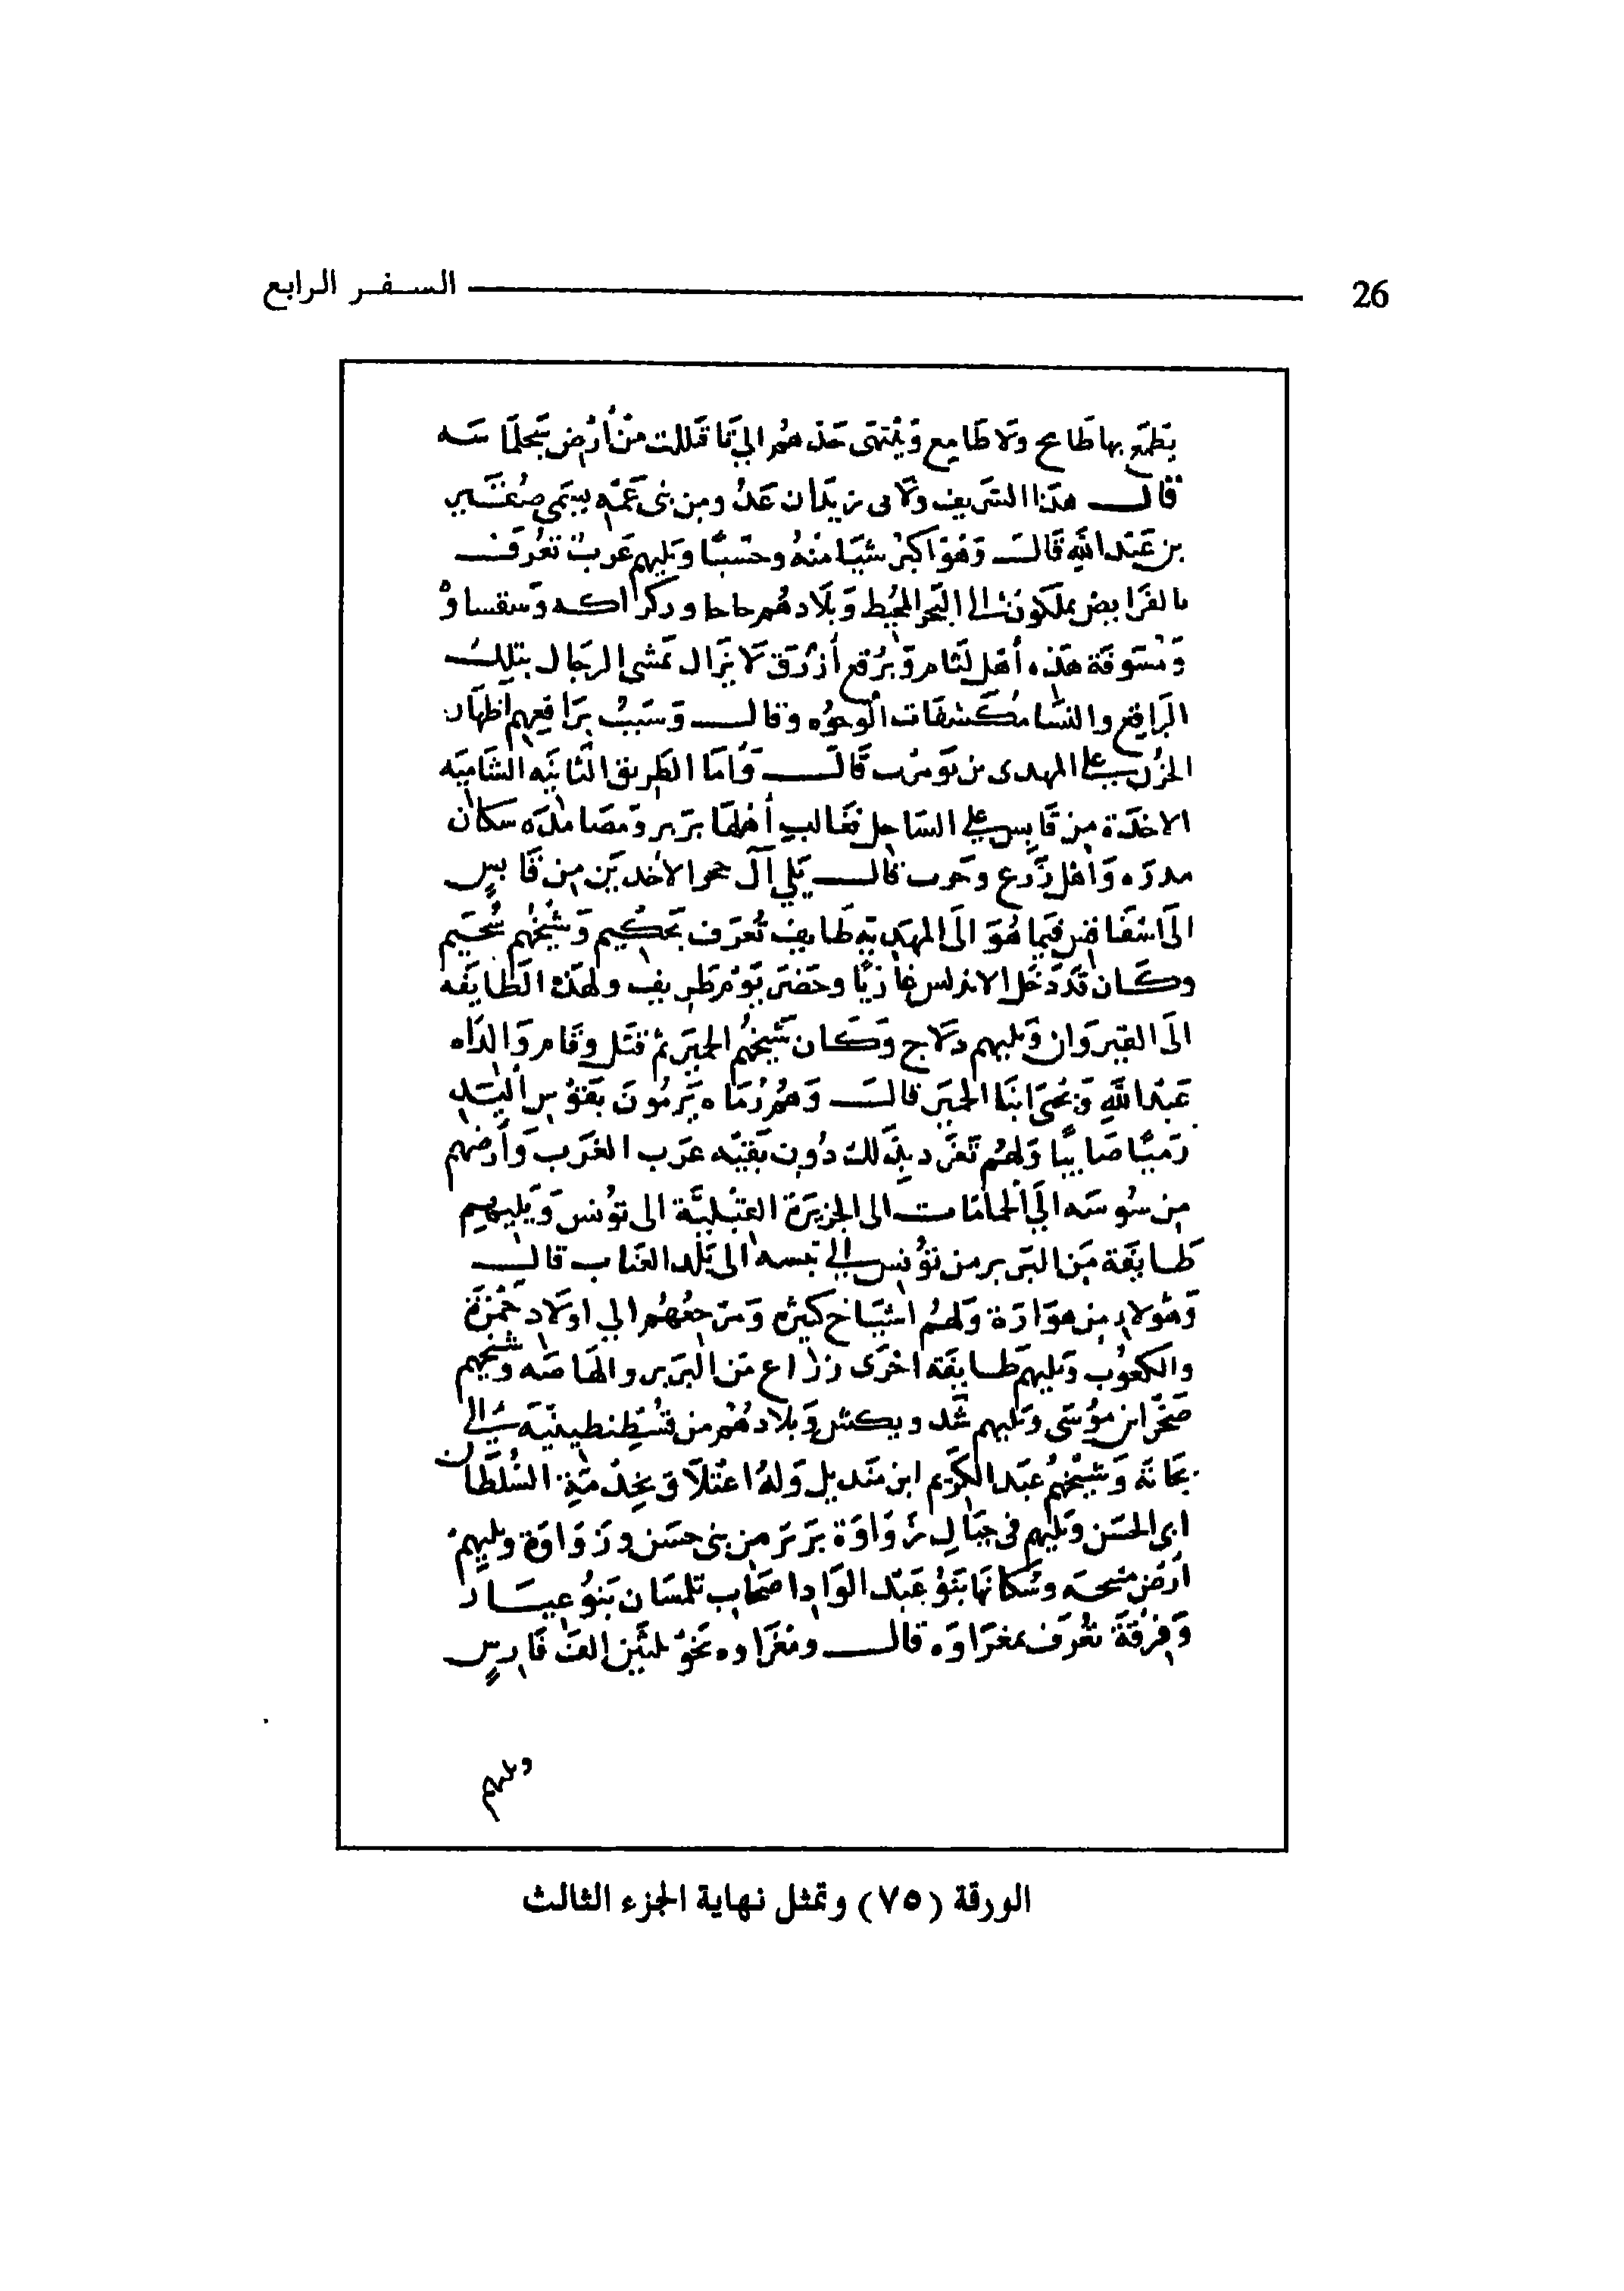 26 السفر الرابع
يطمع بها طامح ولا طامع وينتهى حد هم الي ما قللت من أرض سجلما سه
قال هذا الشريف ولابى زيدان عدو من بنى عمه يسمى صغير
بن عبد الله قال وهو اكبر شيا منه وحسبا ويليهم عرب تعرف
بالفرايض يملكون الى البحر المحيط وبلادهم حاحا ودكراكه وسقساوة
ومسوفة هذه أهل لثام وبرقع أزرق لا يزال تمشى الرجال بتلك
البراقع والنسا مكشفات الوجوه وقال وسبب براقعهم اظهار
الحزن على المهدى بن تومرت قال وأما الطريق الثانيه الشاميه
الاخذة من قابس على الساحل فغالب أهلها بربر ومصامده سكان
مدره وأهل زرع وحرب قال يلي آل حجر الاخذين من قابس
الى اسفاقس فيما هو الى المهديه طايف تعرف بحكيم وشيخهم سحيم
وكان قد دخل الاندلس غازيا وحضر يوم طريف ولهذه الطايفه
الى القيروان ويليهم دلاج وكان شيخهم الحبير ثم قتل وقام والداه
عبد الله ويحى ابنا الحبير قال وهم رماه يرمون بقوس اليد
رميا صايبا ولهم تفرد بذلك دون بقيه عرب الغرب وأرضهم
من سوسه الى الحمامات الى الجزيرة القبلية الى تونس ويليهم
طايفة من البربر من تونس الى تبسه الى بلد العناب قال
وهولاء من هوارة ولهم اشياخ كثيره ومرجعهم الي اولاد حمزة
والكعوب ويليهم طايفه اخرى زراع من البربر والهاصه وشيخهم
صخر ابن موسى ويليهم سد ويكش وبلادهم من قسنطينية الى
بجانه وشيخهم عبد الكريم ابن منديل وله اعتلاق بخدمة السلطان
ابي الحسن ويليهم في جبال زواوة بربر من بنى حسن وزواوة ويليهم
ارض متيجه وسكانها بنو عبد الواد اصحاب تلمسان بنو عيسار
وفرقة تعرف بمغراوه قال ومغراوه نحو ثلثين الف فارس
ويليهم
الورقة (٧٥) وتمثل نهاية الجزء الثالث